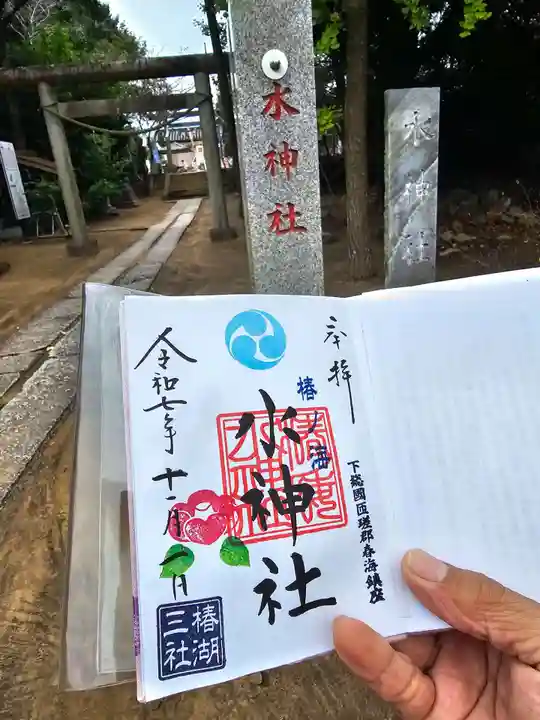 水神社
水神社
奉拝
椿ノ海
下総國匝瑳郡春海鎮座
水神社
令和七年十一月一日
椿湖
三社